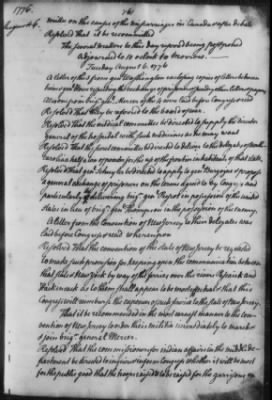 1776.
(76)
August 6.
mittee on the causes of the miscarriages in Canada was after debate
Resolved that it be recommitted
The several matters to this day referred being postponed
adjourned to 10 o'clock to Morrow.
Tuesday August 6. 1776
A letter of the 5 from gen. Washington enclosing copies of letters between
him & gen. Howe respecting the exchange of prisoners & sundry other letters & papers
Also one from brig. gen. Mercer of the 4 were laid before Congress & read
Resolved That they be referred to the board of war.
Resolved That the medical committee be directed to supply the director
general of the hospital with such medicines as he may want
Resolved That the secret committee be directed to deliver to the delegates of North
Carolina half a ton of powder for the use of the frontier inhabitants of that state.
Resolved That gen. Schuyler be directed to apply to gen. Burgoyne & propose
a general exchange of prisoners on the terms agreed to by Congress and
particularly of delivering brig. gen. Prescot in possession of the united
States in lieu of brig. gen. Thompson in the possession of the enemy,
A letter from the Convention of New Jersey to their delegates was
laid before Congress & read Whereupon
Resolved That the convention of the State of New Jersey be requested
to make such provision for keeping open the communication between
that State & New York by way of the ferries over the rivers Passaick and
Hackinsack as to them shall appear to be most effectual & that this
Congress will reimburse the expence of such service to the State of New Jersey.
That it be recommended in the most earnest manner to the con-
vention of New Jersey to order their militia immediately to march &
join brig. general Mercer.
Resolved That the commissioners for indian affairs in the middle de-
partment be directed to inform Congress whether it will be most
for the public good that the troops raised & to be raised for the garrisons on